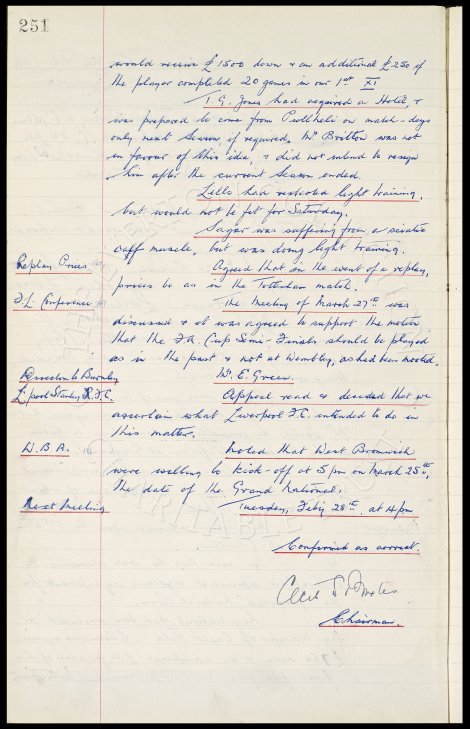 251
would receive £1500 down & an additional £250 if
the player completed 20 games in our 1st XI
T.G. Jones had acquired a Hotel, &
was prepared to come from Pwllheli on match-days
only next Season if required. Mr Britton was not
in favour of this idea, & did not intend to resign
him after the current Season ended.
Lello had restarted light training,
but would not be fit for Saturday.
Sagar was suffering from a sciatic
calf muscle, but was doing light training.
Replay Prices
Agreed that in the event of a replay,
prices be as in the Tottenham match.
F.L. Conference
The Meeting of March 27th was
discussed & it was agreed to support the motion
that the F.A. Cup Semi-Finals should be played
as in the past & not at Wembley, as had been mooted.
Direction to Burnley
Mr. E. Green.
L'pool Stanley R.F.C.
Appeal read & decided that we
ascertain what Liverpool F.C. intended to do in
this matter.
W.B.A.
Noted that West Bromwich
were willing to kick-off at 5 pm on March 25th,
the date of the Grand National.
Next Meeting
Tuesday, Feb'y 28th at 4 pm
Confirmed as correct.
Cecil S.
Chairman.